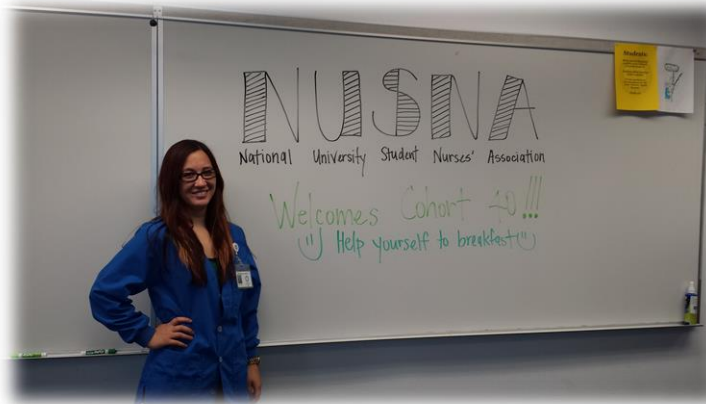 NUSNA
National University Student Nurses' Association
Welcomes Cohort !!!
Help yourself to breakfast
Students: